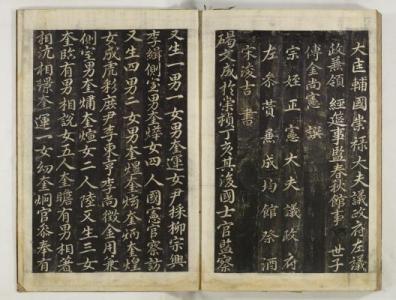 大匡輔國崇祿大夫議政府左議
政兼領 經筵事監春秋館事 世子
傅金尚憲 撰
宗姪正憲大夫議政府
左參贊兼成均館祭酒
宋浚吉 書
碣文成於崇禎丁亥其後國士官監察
又生一男一女男奎運女尹採柳宗興
李緝側室男奎燁女四人國憲官察訪
又生四男二女男奎煌奎炳奎煌
女成虎彩庶尹李東亨李尚微金用兼
側室男奎奎煊女二人陸又生三女
奎臨有男相說女五人奎瞻有男相著
相沆相璟奎運一女幼奎炯官參奉有